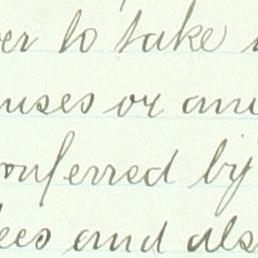 er to take
uses or any
onferred by
ees and als